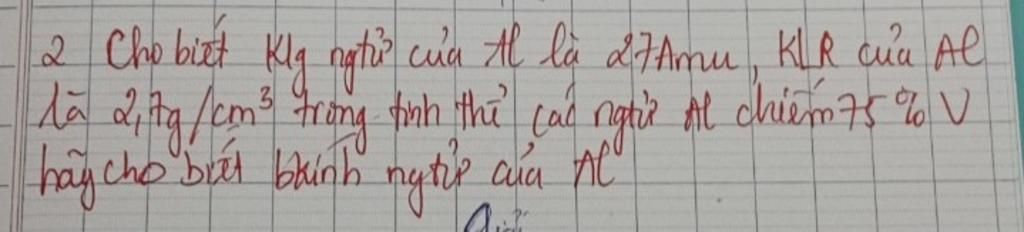 2 Cho biết Klg ngtử của Al là 27Amu, KLR của Al
là 2,7g/cm³ trong tinh thể các ngtử Al chiếm 75% V
hãy cho biết bkính ngtử của Al